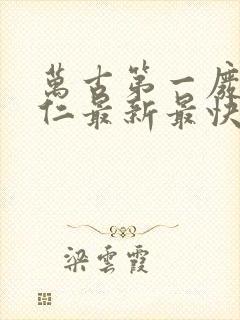 萬古第一廢
仁最新最快
梁雲霞